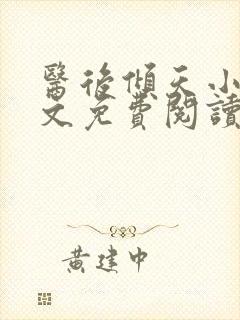 醫後傾天小
文免費閱讀
黃建中